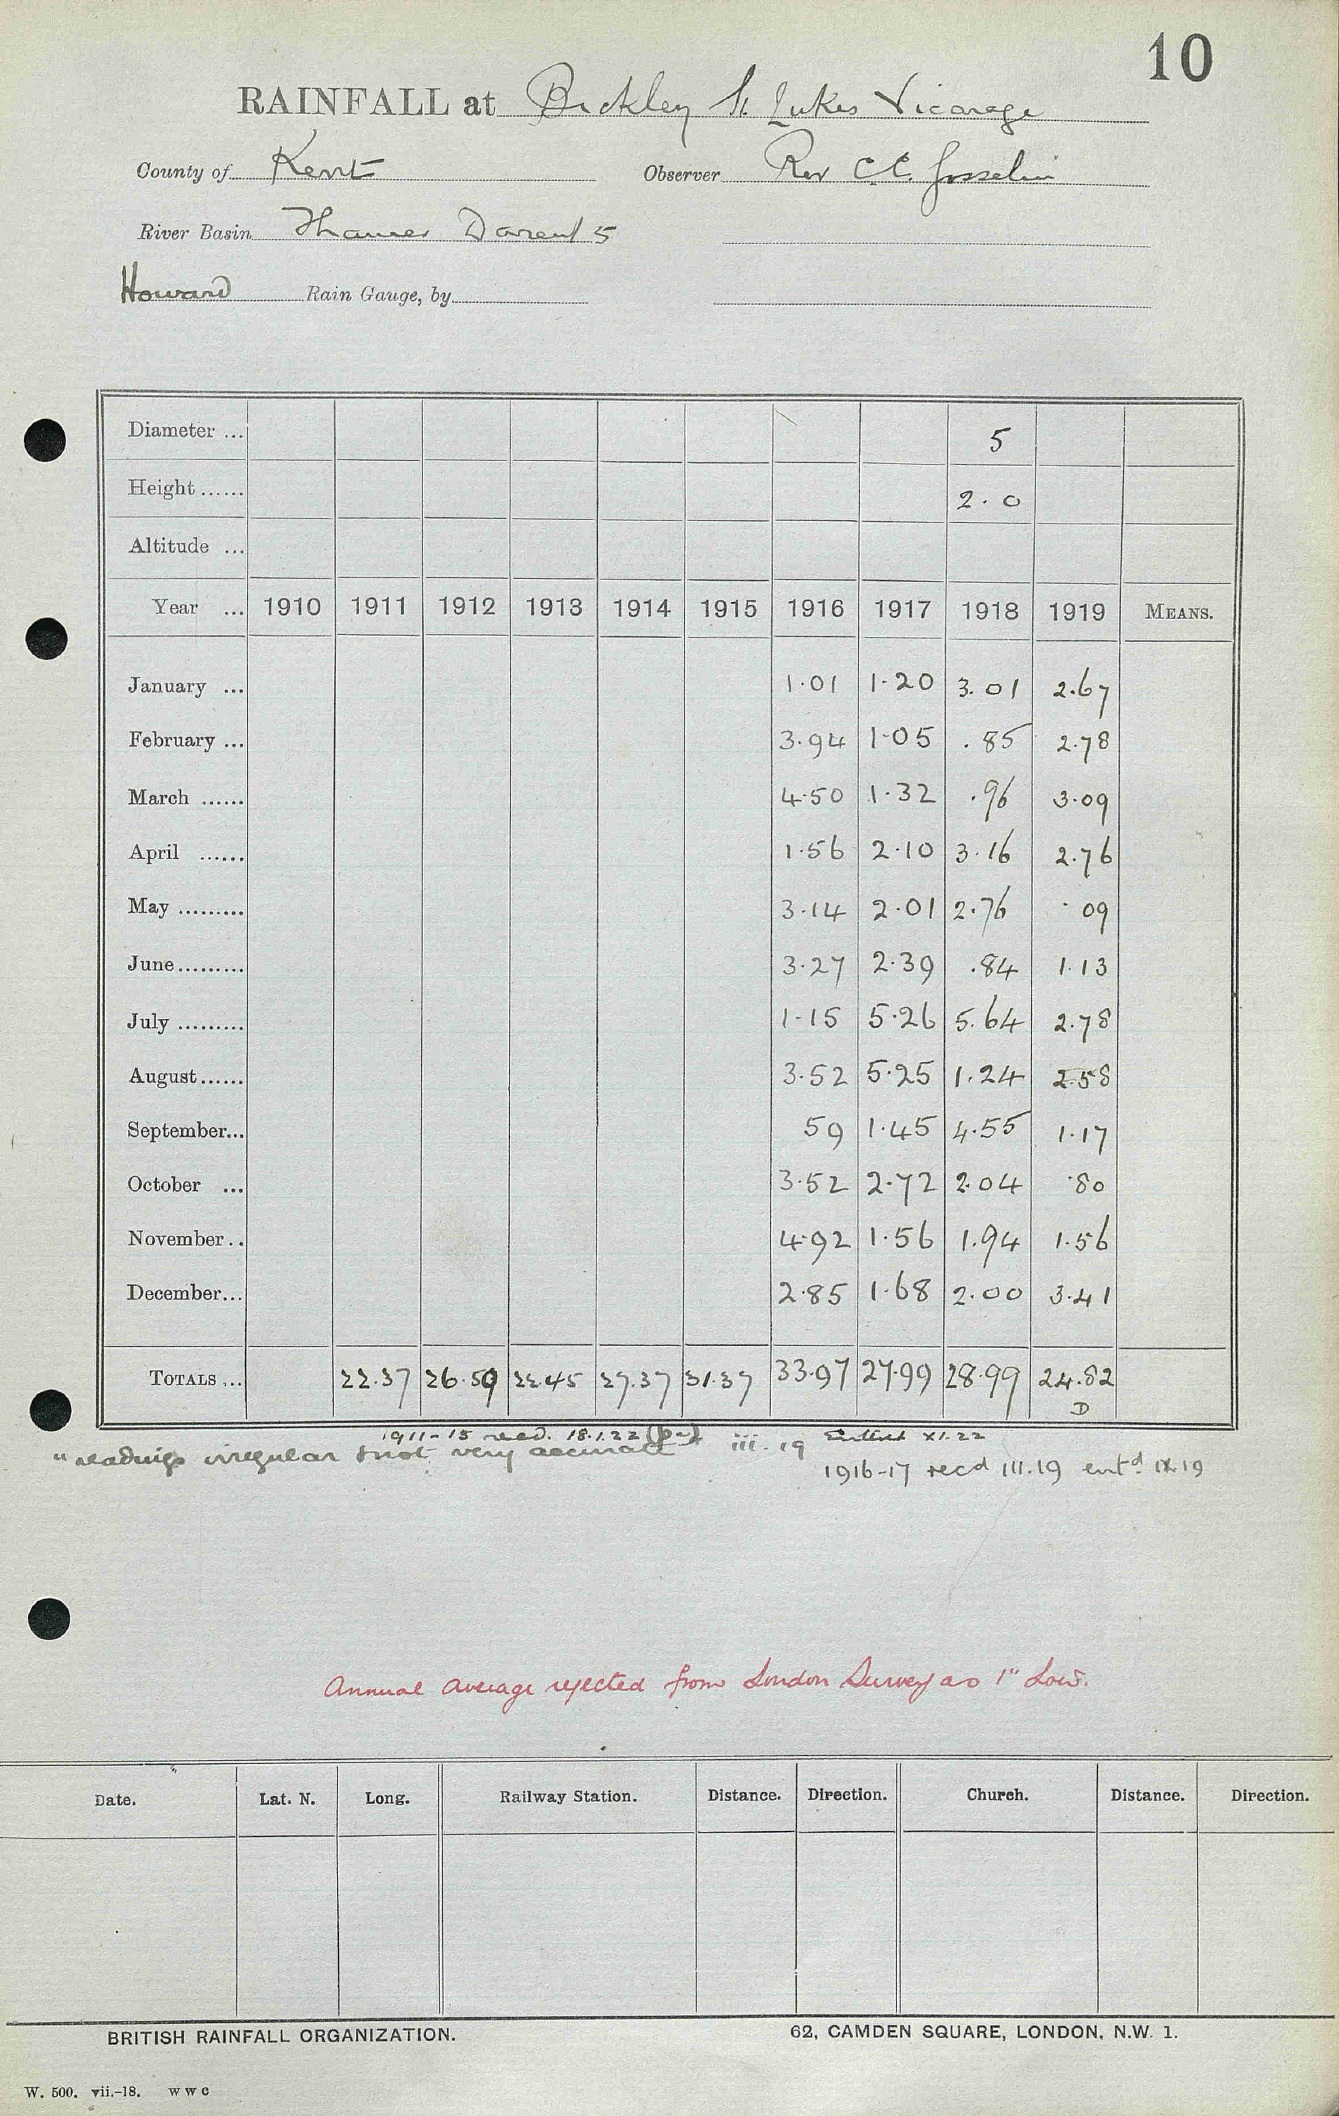 10
RAINFALL at Bickley St. Lukes Vicarage
County of Kent Observer Rev C.E. Josselin
River Basin Thames Darent 5
Howard Rain Gauge, by
Diameter ... 5
Height ...... 2.0
Altitude ...
Year ... 1910 1911 1912 1913 1914 1915 1916 1917 1918 1919 MEANS.
January ... 1.01 1.20 3.01 2.67
February ... 3.94 1.05 .85 2.78
March ...... 4.50 1.32 .96 3.09
April ...... 1.56 2.10 3.16 2.76
May ......... 3.14 2.01 2.76 .09
June ......... 3.27 2.39 .84 1.13
July ......... 1.15 5.26 5.64 2.78
August ...... 3.52 5.25 1.24 2.58
September... 59 1.45 4.55 1.17
October ... 3.52 2.72 2.04 .80
November .. 4.92 1.56 1.94 1.56
December... 2.85 1.68 2.00 3.41
TOTALS ... 22.37 26.59 22.45 27.37 31.37 33.97 27.99 28.99 24.82
D
1911-15 recd. 18.1.22 Entered XI.22
"readings irregular & not very accurate iii.19
1916-17 recd III.19 entd IX.19
Annual average rejected from London Survey as 1" Low.
Date. Lat. N. Long. Railway Station. Distance. Direction. Church. Distance. Direction.
BRITISH RAINFALL ORGANIZATION. 62, CAMDEN SQUARE, LONDON, N.W. 1.
W. 500. vii.-18. W W C